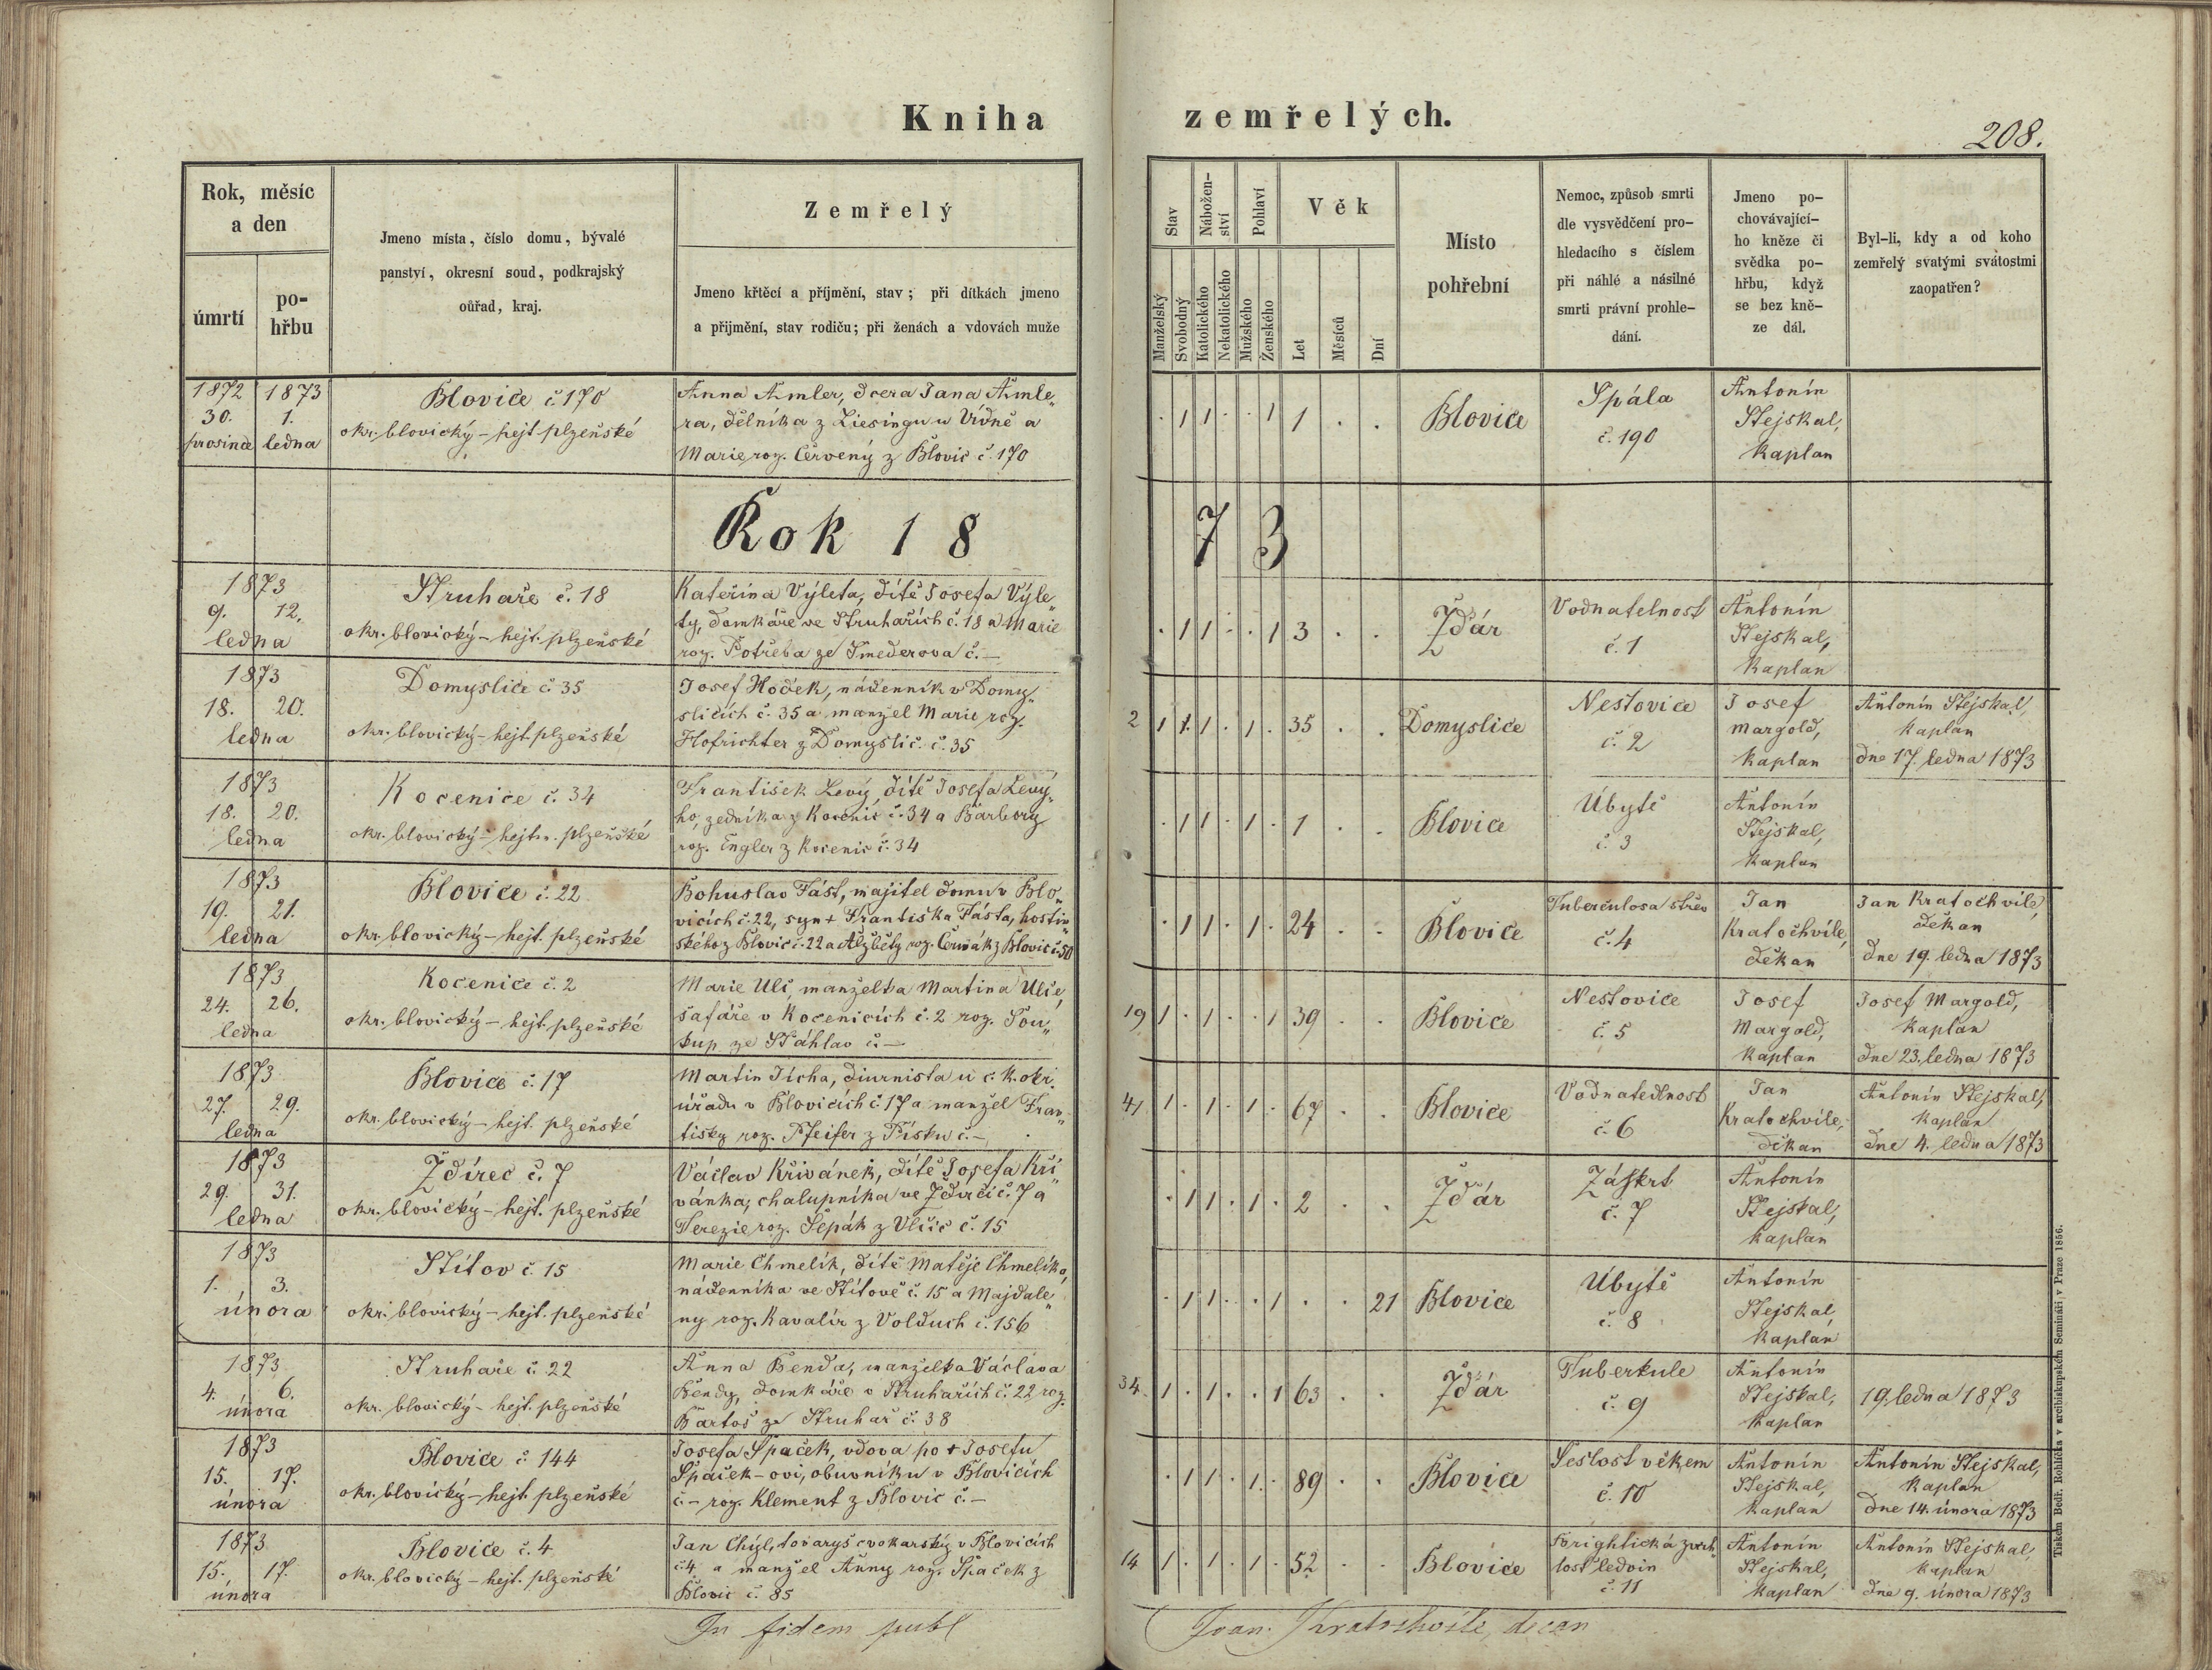 Kniha zemřelých.
208.
Rok, měsíc
a den
úmrtí
po-
hřbu
Jmeno místa, číslo domu, bývalé
panství, okresní soud, podkrajský
oůřad, kraj.
Zemřelý
Jmeno křtěcí a příjmění, stav; při dítkách jmeno
a přijmění, stav rodiču; při ženách a vdovách muže
Stav
Nábožen-
ství
Pohlaví
Věk
Manželský
Svobodný
Katolického
Nekatolického
Mužského
Ženského
Let
Měsíců
Dní
Místo
pohřební
Nemoc, způsob smrti
dle vysvědčení pro-
hledacího s číslem
při náhlé a násilné
smrti právní prohle-
dání.
Jmeno po-
chovávající-
ho kněze či
svědka po-
hřbu, když
se bez kně-
ze dál.
Byl-li, kdy a od koho
zemřelý svatými svátostmi
zaopatřen?
1872 1873
30. 1.
prosince ledna
Blovice č. 170
okr. blovický – hejt. plzeňské
Anna Amler, dcera Jana Amle„
ra, dělníka z Liesingu u Vídně a
Marie roz. Červený z Blovic č. 170
. 1 1 . . 1 1 . .
Blovice
Spála
č. 190
Antonín
Stejskal,
kaplan
Rok 1873
1873
9. 12.
ledna
Struhaře č. 18
okr. blovický – hejt. plzeňské
Kateřina Výleta, dítě Josefa Výle„
ty, domkáře ve Struhařích č. 18 a Marie
roz. Potřeba ze Smederova č. –
. 1 1 . . 1 3 . .
Ždár
Vodnatelnost
č. 1
Antonín
Stejskal,
kaplan
1873
18. 20.
ledna
Domyslice č. 35
okr. blovický – hejt. plzeňské
Josef Hodek, nádenník v Domy„
slicích č. 35 a manžel Marie roz.
Hofrichter z Domyslic č. 35
2 1 1. 1 . 1 . 35 . .
Domyslice
Nestovice
č. 2
Josef
Margold,
kaplan
Antonín Stejskal,
kaplan
dne 17. ledna 1873
1873
18. 20.
ledna
Kocenice č. 34
okr. blovický – hejtm. plzeňské
František Levý, dítě Josefa Levý„
ho, zedníka z Kocenic č. 34 a Barbory
roz. Engler z Kocenic č. 34
. 1 1 . 1 . 1 . .
Blovice
Úbytě
č. 3
Antonín
Stejskal,
kaplan
1873
19. 21.
ledna
Blovice č. 22
okr. blovický – hejt. plzeňské
Bohuslav Fást, majitel domu v Blo„
vicích č. 22, syn + Františka Fásta, hostin„
ského z Blovic č. 22 a Alžběty roz. Čermák z Blovic č. 50
. 1 1 . 1 . 24 . .
Blovice
Tuberculosa střev
č. 4
Jan
Kratochvíle,
děkan
Jan Kratochvíle,
děkan
dne 19. ledna 1873
1873
24. 26.
ledna
Kocenice č. 2
okr. blovický – hejt. plzeňské
Marie Ulč, manželka Martina Ulče,
šafáře v Kocenicích č. 2 roz. Sou„
kup ze Stáhlav č. –
19 1 . 1 . . 1 39 . .
Blovice
Nestovice
č. 5
Josef
Margold,
kaplan
Josef Margold,
kaplan
dne 23. ledna 1873
1873
27. 29.
ledna
Blovice č. 17
okr. blovický – hejt. plzeňské
Martin Jícha, diurnista u c. k. okr.
úřadu v Blovicích č. 17 a manžel Fran„
tisky roz. Pfeifer z Písku č. –
41 1 . 1 . 1 . 67 . .
Blovice
Vodnatedlnost
č. 6
Jan
Kratochvíle,
děkan
Antonín Stejskal,
kaplan
dne 4. ledna 1873
1873
29. 31.
ledna
Ždírec č. 7
okr. blovický – hejt. plzeňské
Václav Křivánek, dítě Josefa Kři„
vánka, chalupníka ve Ždírci č. 7 a
Terezie roz. Šepák z Vlčic č. 15
. 1 1 . 1 . 2 . .
Ždár
Záškrt
č. 7
Antonín
Stejskal,
kaplan
1873
1. 3.
února
Štítov č. 15
okr. blovický – hejt. plzeňské
Marie Chmelík, dítě Matěje Chmelíka,
nádenníka ve Štítově č. 15 a Majdale„
ny roz. Kavalír z Volduch č. 156
. 1 1 . . 1 . . 21
Blovice
Úbytě
č. 8
Antonín
Stejskal,
kaplan
1873
4. 6.
února
Struhaře č. 22
okr. blovický – hejt. plzeňské
Anna Benda, manželka Václava
Bendy, domkáře v Struhařích č. 22 roz.
Bartoš ze Struhař č. 38
34 1 . 1 . . 1 63 . .
Ždár
Tuberkule
č. 9
Antonín
Stejskal,
kaplan
19. ledna 1873
1873
15. 17.
února
Blovice č. 144
okr. blovický – hejt. plzeňské
Josefa Špaček, vdova po + Josefu
Špaček-ovi, obuvníku v Blovicích
č. – roz. Klement z Blovic č. –
. 1 1 . 1 . 89 . .
Blovice
Sešlost věkem
č. 10
Antonín
Stejskal,
kaplan
Antonín Stejskal,
kaplan
dne 14. února 1873
1873
15. 17.
února
Blovice č. 4
okr. blovický – hejt. plzeňské
Jan Chýl, tovaryš cvokařský v Blovicích
č. 4 a manžel Anny roz. Špaček z
Blovic č. 85
14 1 . 1 . 1 . 52 . .
Blovice
tost ledvin
č. 11
Antonín
Stejskal,
kaplan
Antonín Stejskal,
kaplan
dne 9. února 1873
In fidem publ
Joan. Kratochvíle, decan
Tiskem Bedř. Rohlíčka v arcibiskupském Semináři v Praze 1856.